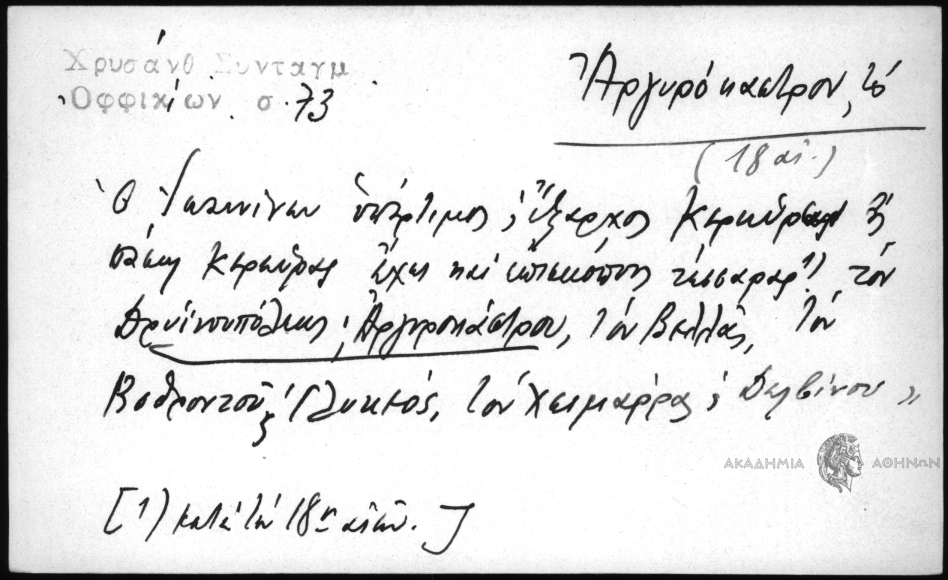 Χρυσάνθ Συνταγμ
Ὀφφικίων σ. 73
Ἀργυρόκαστρον, τό
(18 αἰ.)
Ὁ Ἰωαννίνων ὑπέρτιμος ἔξαρχος Κερκύρας
Κερκύρας ἔχει καὶ ἐπισκόπους τέσσαρας 1) τὸν
Δρυϊνουπόλεως Ἀργυροκάστρου, τὸν Βελλᾶς, τὸν
Βοθροντοῦ Γλυκέος, τὸν Χειμάρρας Δελβίνου »
ΑΚΑΔΗΜΙΑ ΑΘΗΝΩΝ
[1) κατὰ τὸν 18ον αἰῶν. ]